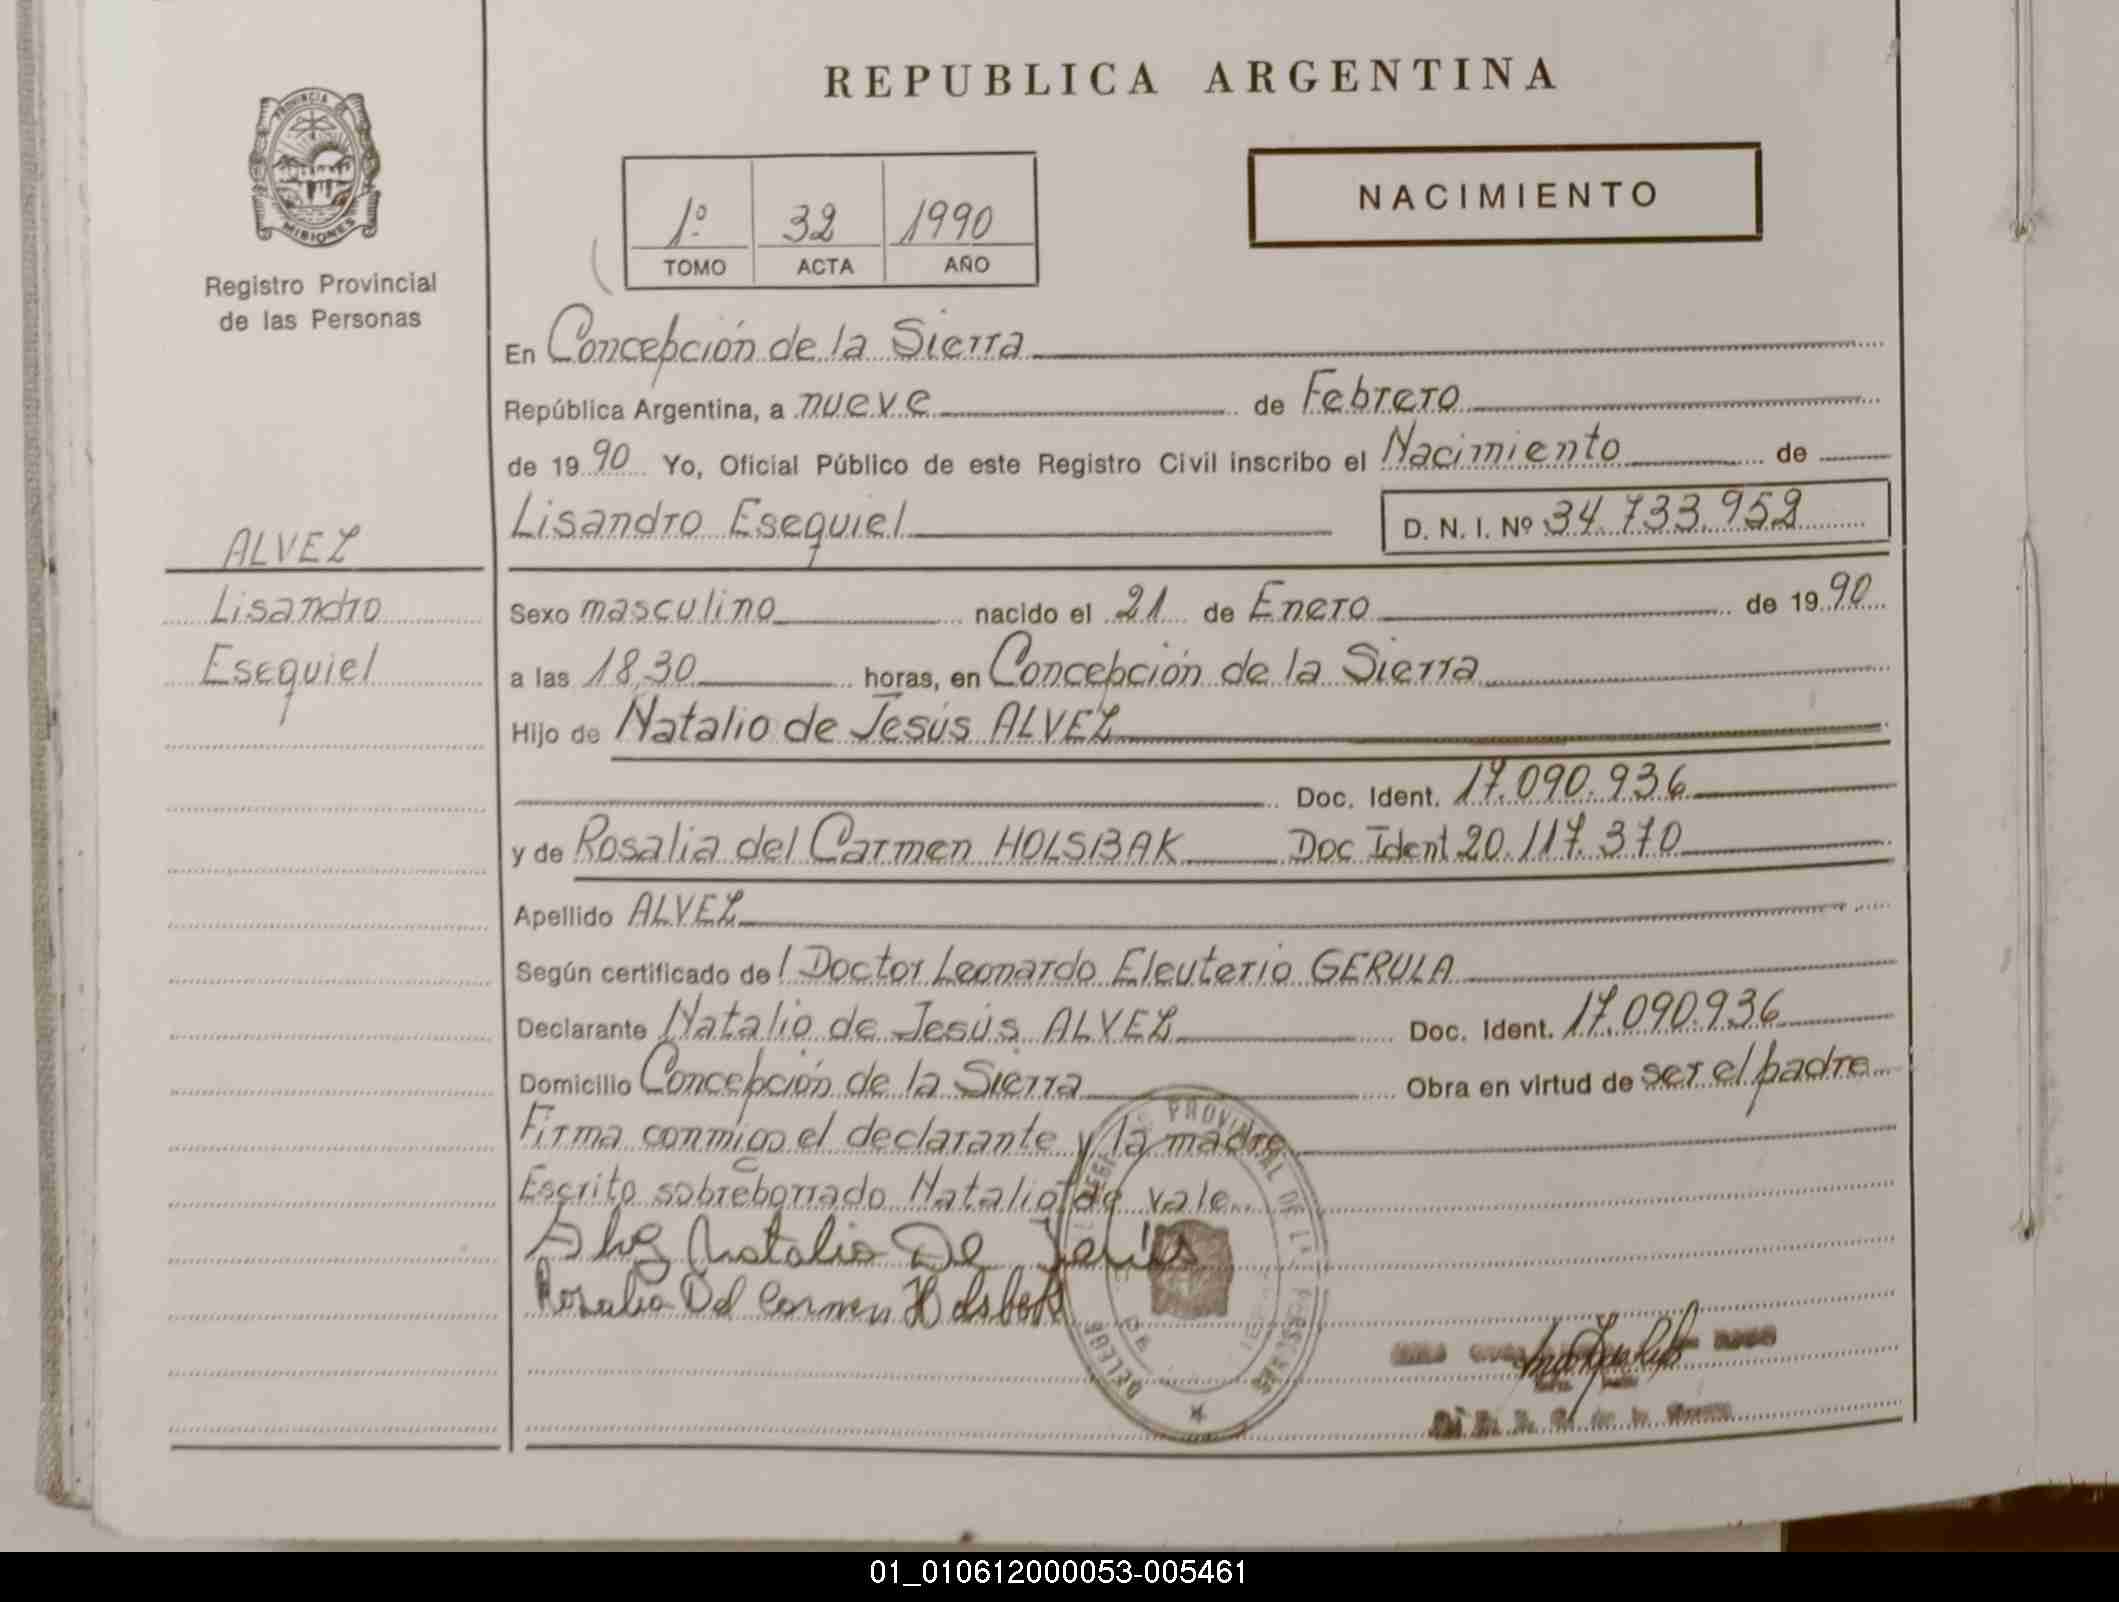 REPUBLICA ARGENTINA
PROVINCIA
MISIONES
Registro Provincial
de las Personas
1º 32 1990
TOMO ACTA AÑO
NACIMIENTO
En Concepción de la Sierra
República Argentina, a nueve de Febrero
de 1990 Yo, Oficial Público de este Registro Civil inscribo el Nacimiento de
Lisandro Esequiel D. N. I. Nº 34.733.952
ALVEZ
Lisandro
Esequiel
Sexo masculino nacido el 21 de Enero de 1990
a las 18,30 horas, en Concepción de la Sierra
Hijo de Natalio de Jesús ALVEZ
Doc. Ident. 17.090.936
y de Rosalia del Carmen HOLSBAK Doc Ident 20.117.370
Apellido ALVEZ
Según certificado del Doctor Leonardo Eleuterio GERULA
Declarante Natalio de Jesús ALVEZ Doc. Ident. 17.090.936
Domicilio Concepción de la Sierra Obra en virtud de ser el padre
Firma conmigo el declarante y la madre
Escrito sobreborrado Natalio de vale
Natalio De Jesús
Rosalia Del Carmen Holsbak
01_010612000053-005461